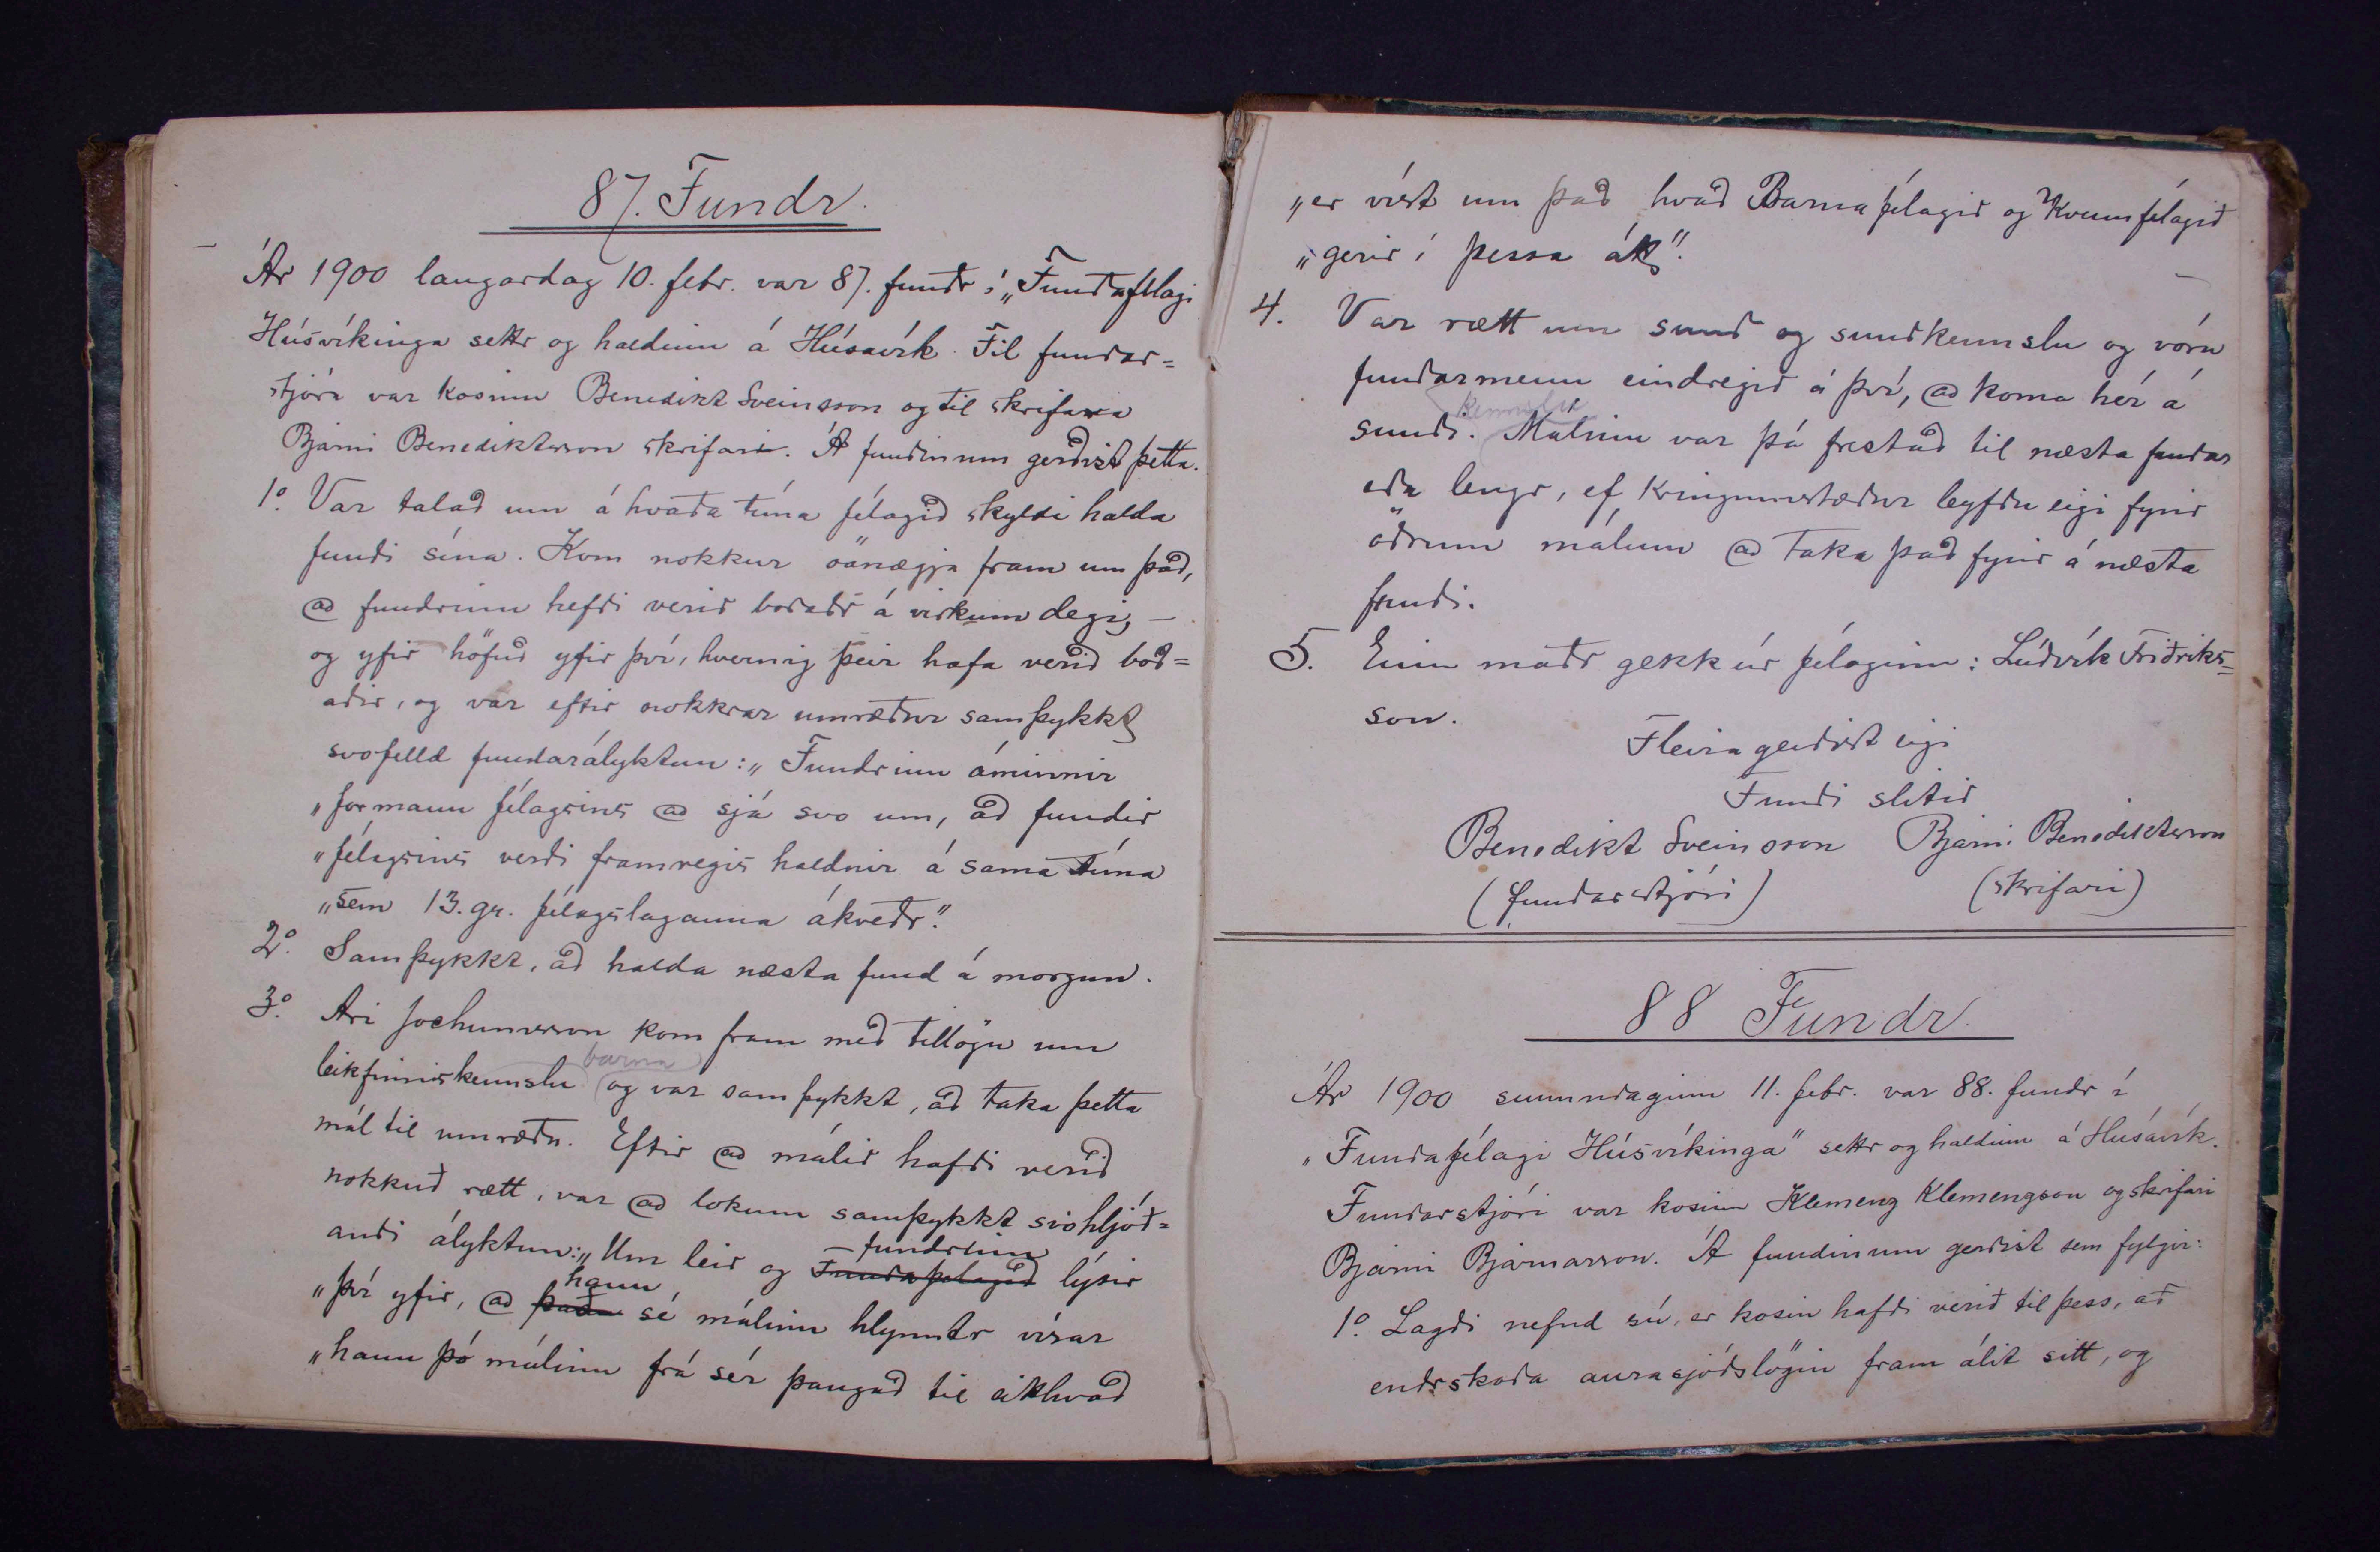 87. Fundr.
Ár 1900 laugardag 10. febr. var 87. fundr í „Fundafélagi
Húsvíkinga settr og haldinn á Húsavík. Til fundar=
stjóra var kosinn Benedikt Sveinsson og til skrifara
Bjarni Benediktsson skrifari. Á fundinum gerðist þetta.
1.° Var talað um á hvaða tíma félagið skyldi halda
fundi sína. Kom nokkur óánægja fram um það,
að fundrinn hefði verið boðaðr á virkum degi, —
og yfir höfuð yfir því, hvernig þeir hafa verið boð=
aðir, og var eftir nokkrar umræður samþykkt
svofelld fundarályktun: „Fundrinn áminnir
„formann félagsins að sjá svo um, að fundir
„félagsins verði framvegis haldnir á sama tíma
„sem 13. gr. félagslaganna ákveðr."
2.° Samþykkt, að halda næsta fund á morgun.
3.° Ari Jochumsson kom fram með tillögu um
barna
leikfimiskennslu og var samþykkt, að taka þetta
mál til umræðu. Eftir að málið hafði verið
nokkuð rætt, var að lokum samþykkt svohljóð=
fundrinn
andi ályktun: „Um leið og Fundafélagið lýsir
hann
„því yfir, að það sé málinu hlynntr vísar
„hann þó málinu frá sér þangað til eitthvað
„er víst um það hvað Barnafélagið og Kvennfélagið
„gerir í þessa átt".
4. Var rætt um sund og sundkennslu og vóru
fundarmenn eindregið á því, að koma hér á
kennslu
sundi. Málinu var þá frestað til næsta fundar
eða lengr, ef kringumstæður leyfðu eigi fyrir
öðrum málum að taka það fyrir á næsta
fundi.
5. Einn maðr gekk úr félaginu: Lúðvík Friðriks=
son.
Fleira gerðist eigi
Fundi slitið
Benedikt Sveinsson Bjarni Benediktsson
(fundarstjóri) (skrifari)
88 Fundr.
Ár 1900 sunnudaginn 11. febr. var 88. fundr í
„Fundafélagi Húsvíkinga" settr og haldinn á Húsavík.
Fundarstjóri var kosinn Klemenz Klemenzson og skrifari
Bjarni Bjarnarson. Á fundinum gerðist sem fylgir:
1.° Lagði nefnd sú, er kosin hafði verið til þess, að
endrskoða aurasjóðslögin fram álit sitt, og